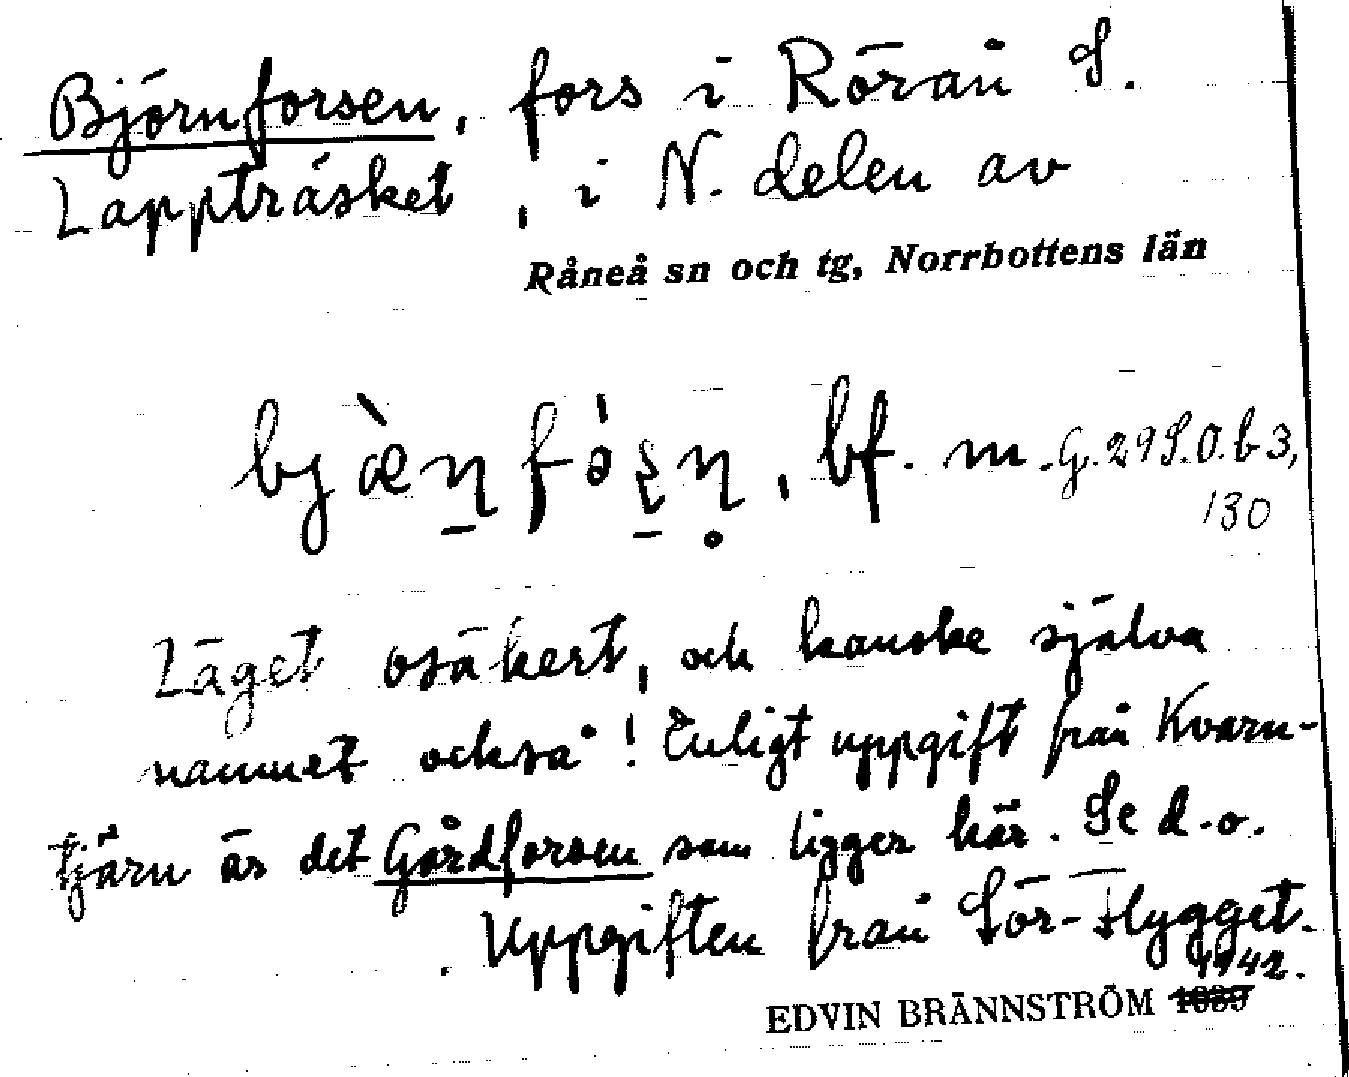 Björnforsen, fors i Rörån S.
Lappträsket, i N. delen av
Råneå sn och tg, Norrbottens län
bf. m. G. 29 S.O. b 3,
130
Läget osäkert, och kanske själva
namnet också! Enligt uppgift från Kvarn-
tjärn är det Gårdforsen som ligger här. Se d.o.
Uppgiften från Sör-Flygget.
1942.
EDVIN BRÄNNSTRÖM 1939